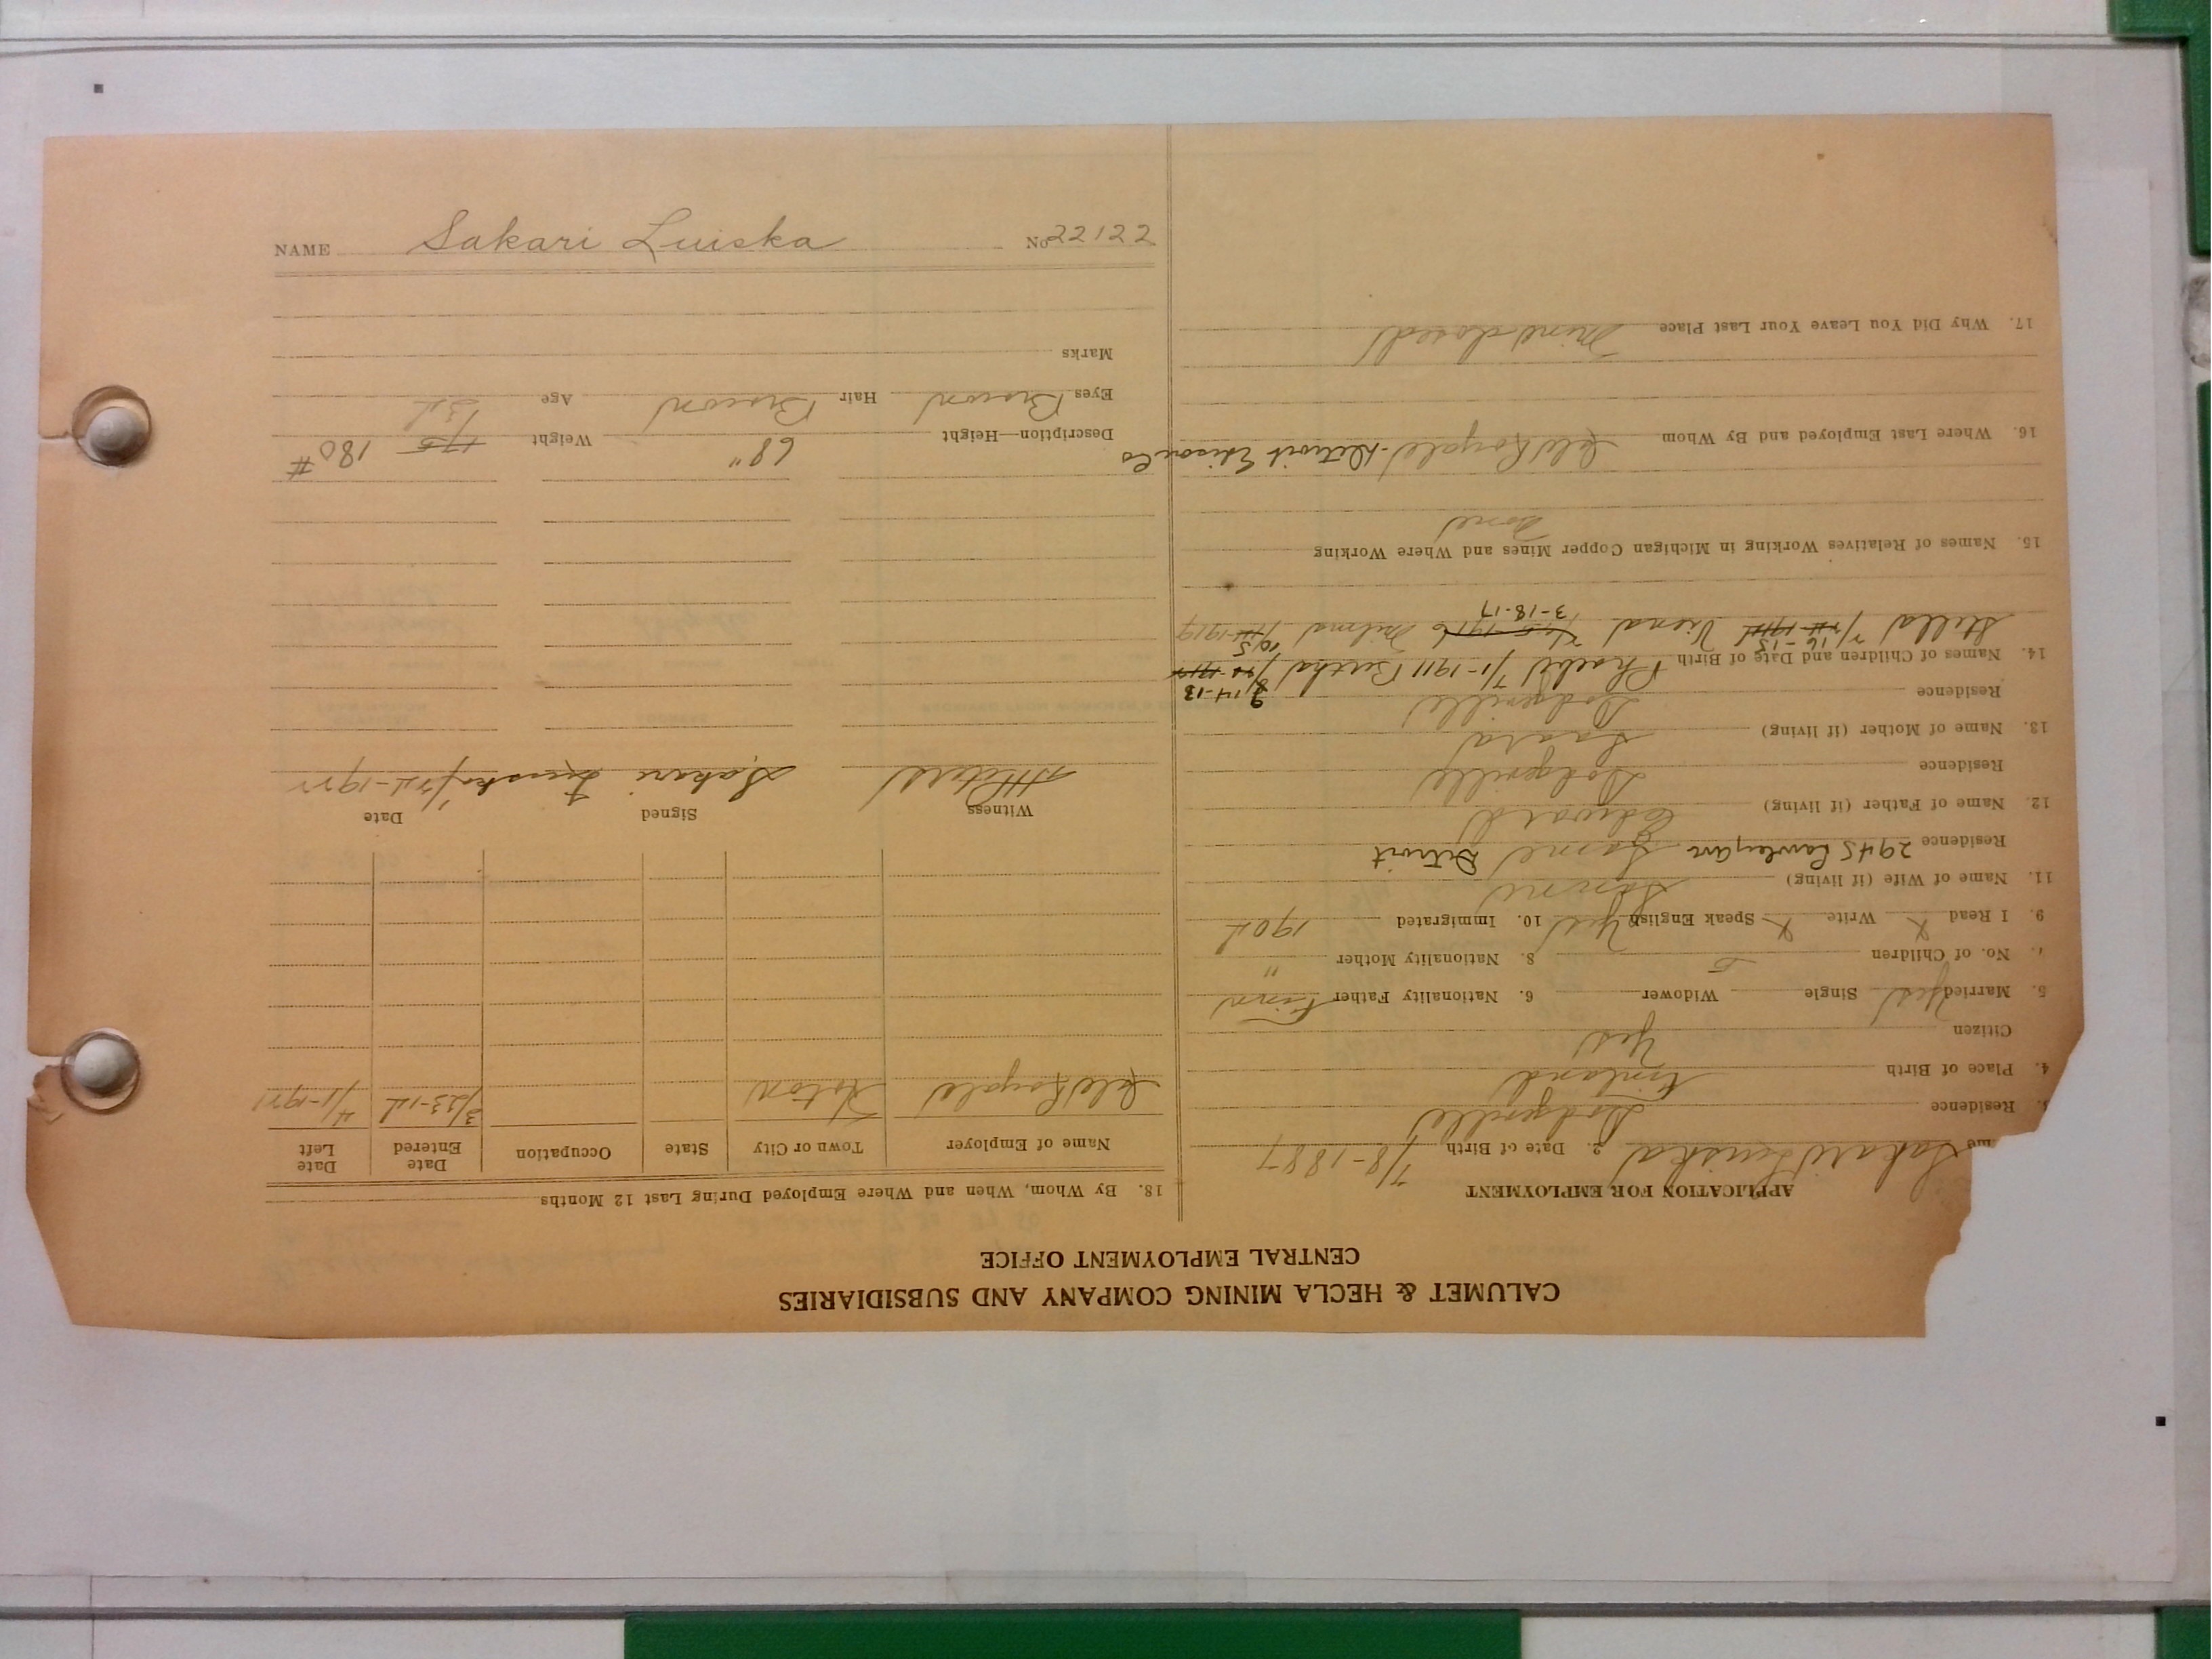 CALUMET & HECLA MINING COMPANY AND SUBSIDIARIES
CENTRAL EMPLOYMENT OFFICE
APPLICATION FOR EMPLOYMENT
me Sakari Luiska 2. Date of Birth 7/8-1887
Residence Dodgeville
4. Place of Birth Finland
Citizen Yes
5. Married Yes Single Widower 6. Nationality Father Finn
No. of Children 5 8. Nationality Mother "
9. I Read X Write X Speak English Yes 10. Immigrated 1902
11. Name of Wife (if living)
Residence 2945 Ave Same Detroit
12. Name of Father (if living) Edward
Residence Dodgeville
13. Name of Mother (if living) Saara
Residence Dodgeville
14. Names of Children and Date of Birth 7/1-1911 Bertha 8-14-13
Stella 16-15 3-18-17 1919
15. Names of Relatives Working in Michigan Copper Mines and Where Working
None
16. Where Last Employed and By Whom Isle Royale - Detroit Edison Co
17. Why Did You Leave Your Last Place Mine closed
18. By Whom, When and Where Employed During Last 12 Months
Name of Employer Town or City State Occupation Date Entered Date Left
Isle Royale Hoton 3/23-12 4/1-1921
Witness Signed Date
Sakari Luiska
Description—Height 68" Weight 175 180 #
Eyes Brown Hair Brown Age
Marks
NAME Sakari Luiska No 22122